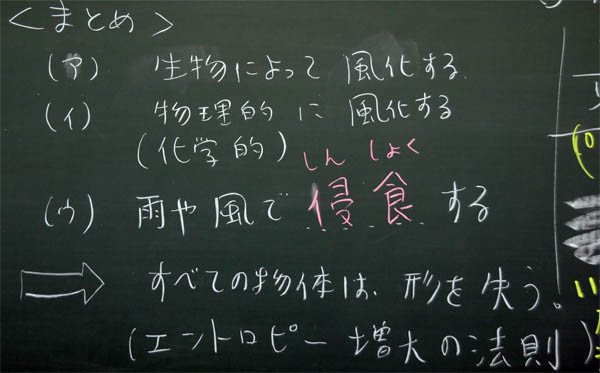 <まとめ>
(ア) 生物によって風化する
(イ) 物理的に風化する
(化学的)
しんしょく
(ウ) 雨や風で侵食する
すべての物体は、形を失う。
(エントロピー増大の法則)